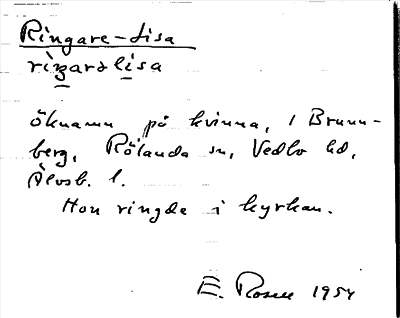 Ringare-Lisa
riŋarəlisa
öknamn på kvinna, i Brunn-
berg, Rölanda sn, Vedbo hd,
Älvsb. l.
Hon ringde i kyrkan.
E. Rosell 1954